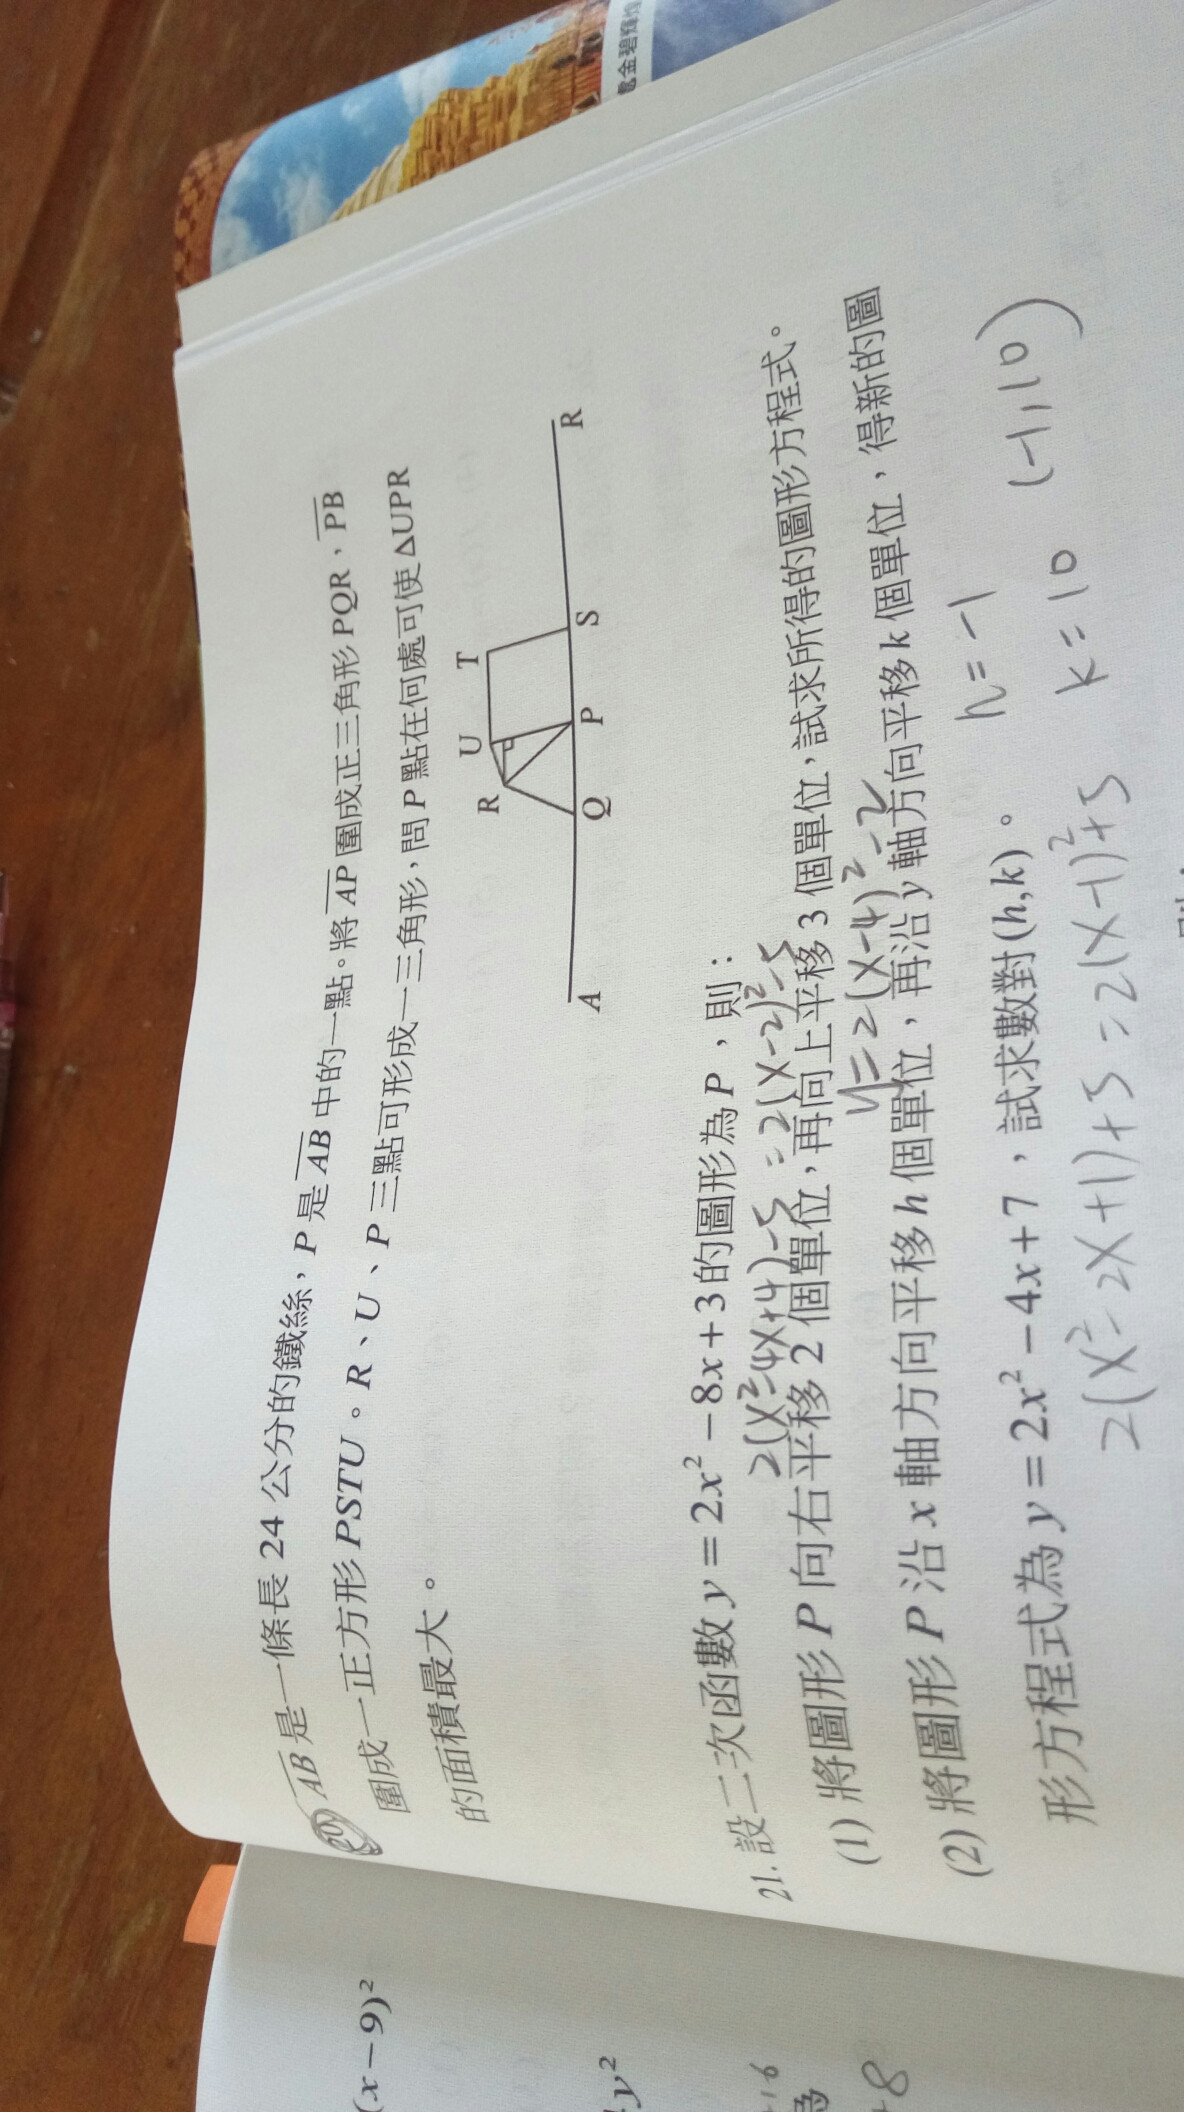 電金碧輝煌
20. AB是一條長24公分的鐵絲，P是AB中的一點。將AP圍成正三角形PQR、PB
圍成一正方形PSTU。R、U、P三點可形成一三角形，問P點在何處可使△UPR
的面積最大。
R U T
A Q P S R
21. 設二次函數 y=2x²-8x+3的圖形為P，則：
2(x²-4x+4)-5 =2(x-2)²-5
(1) 將圖形P向右平移2個單位，再向上平移3個單位，試求所得的圖形方程式。
y=2(x-4)²-2
(2) 將圖形P沿x軸方向平移h個單位，再沿y軸方向平移k個單位，得新的圖
形方程式為y=2x²-4x+7，試求數對(h,k)。
h=-1
2(x²-2x+1)+5=2(x-1)²+5
k=10 (-1,10)
(x-9)²
y²
+8